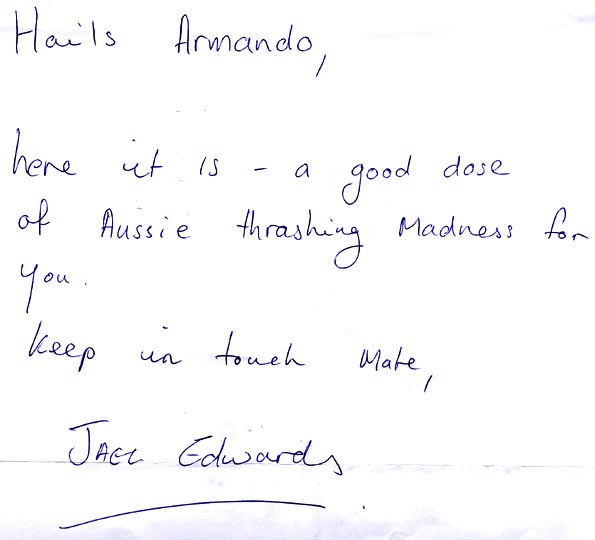 Hails Armando,
here it is - a good dose
of Aussie thrashing Madness for
you.
Keep in touch Mate,
Jael Edwards